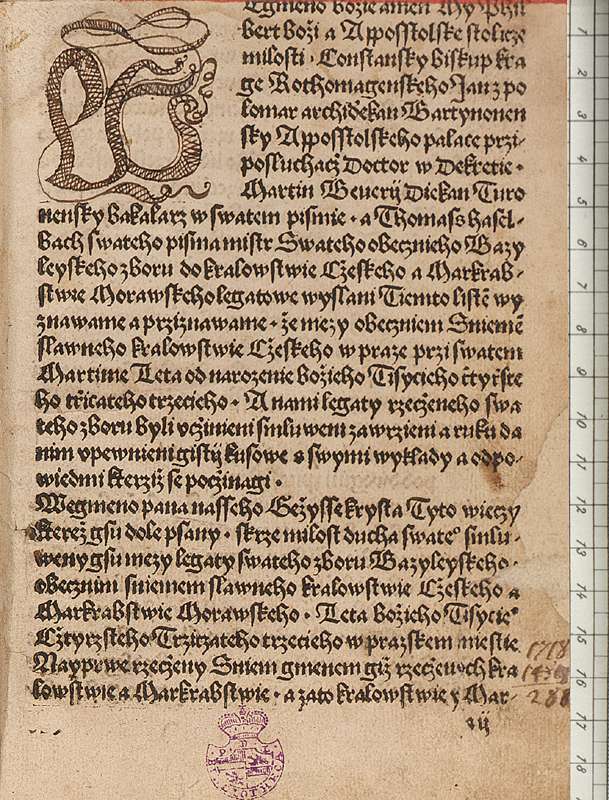 Egmeno bozie amen My Phil
bert bozi a Apposstolske stolicze
milosti · Constansky biskup kra
ge Rothomagenskeho Jan z po
lomar archidekan Bartynonen
sky Apposstolskeho palace przi-
posluchacž Doctor w Dekretie ·
Martin Beuerij Diekan Turo
nensky bakalarz w swatem pismie · a Thomass hasel-
bach swateho pisma mistr Swateho obecznieho Bazy
leyskeho zboru do kralowstwie Cžeskeho a Markrab-
stwie Morawskeho legatowe wyslani Tiemto listē wy
znawame a prziznawame · že mezy obeczniem Sniemē
slawneho kralowstwie Cžeskeho w praze przi swatem
Martinie Leta od narozenie božieho Tisycieho čtyřste
ho třicateho trzecieho · A nami legaty rzecženeho swa
teho zboru byli vcžinieni smluweni zawrzieni a ruku da
nim vpewnieni gistij kusowe s swymi wyklady a odpo-
wiedmi kterziž se poczinagi ·
Wegmeno pana nasseho Gežysse krysta Tyto wieczy
kterež gsu dole psany · skrze milost ducha swate° smlu-
weny gsu mezy legaty swateho zboru Bazyleyskeho ·
obecznim sniemem slawneho kralowstwie Cžeskeho a
Markrabstwie Morawskeho · Leta božieho Tisycie°
Cžtyrzsteho Trzicžateho trzecieho w prazskem miestie
Nayprwe rzecženy Sniem gmenem giž rzecženych kra
lowstwie a Markrabstwie · a za to kralowstwie y Mar-
a ij
1
2
3
4
5
6
7
8
9
10
11
12
13
14
15
16
17
18